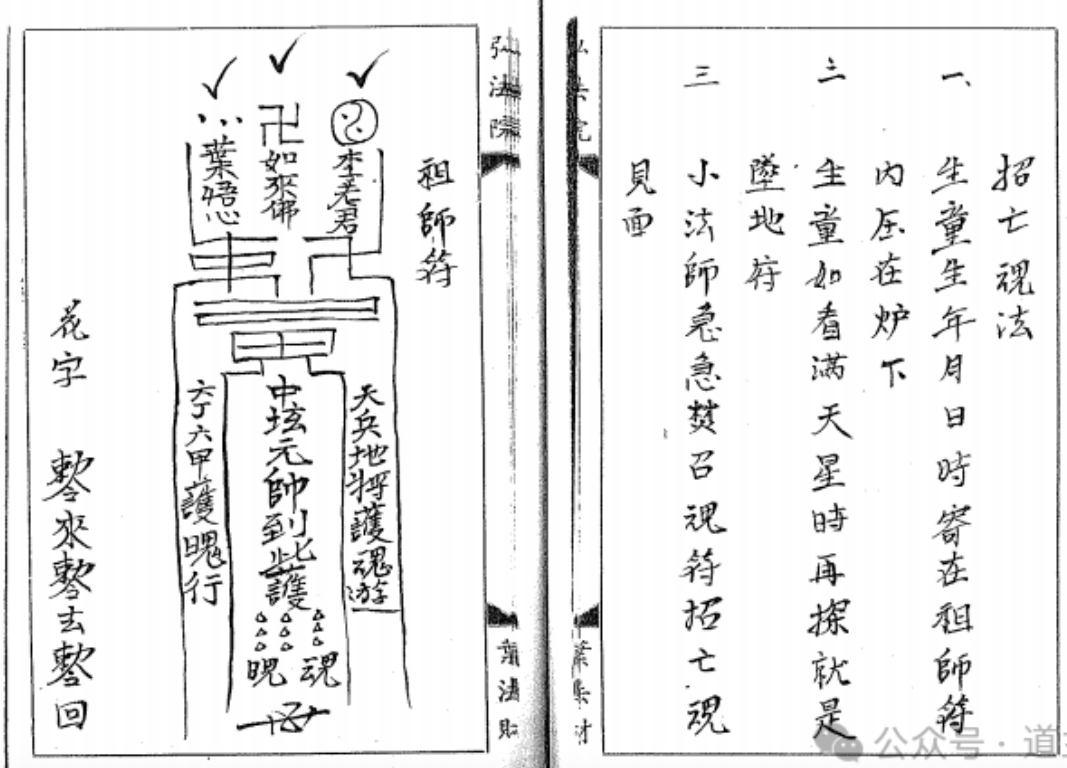 招亡魂法
一、
生童生年月日時寄在祖師符
内压在炉下
二
生童如看满天星時再探就是
墜地符
三
小法師急急焚召魂符招亡魂
見面
弘法院
祖師符
李老君
卍如來佛
葉
天兵地将護魂遊
中坛元帥到此護
魂
六丁六甲護魄行
花字
來
去
回
公众号·道